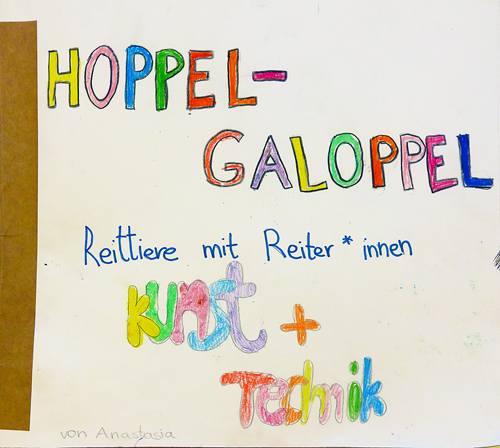 HOPPEL-
GALOPPEL
Reittiere mit Reiter*innen
Kunst +
Technik
von Anastasia